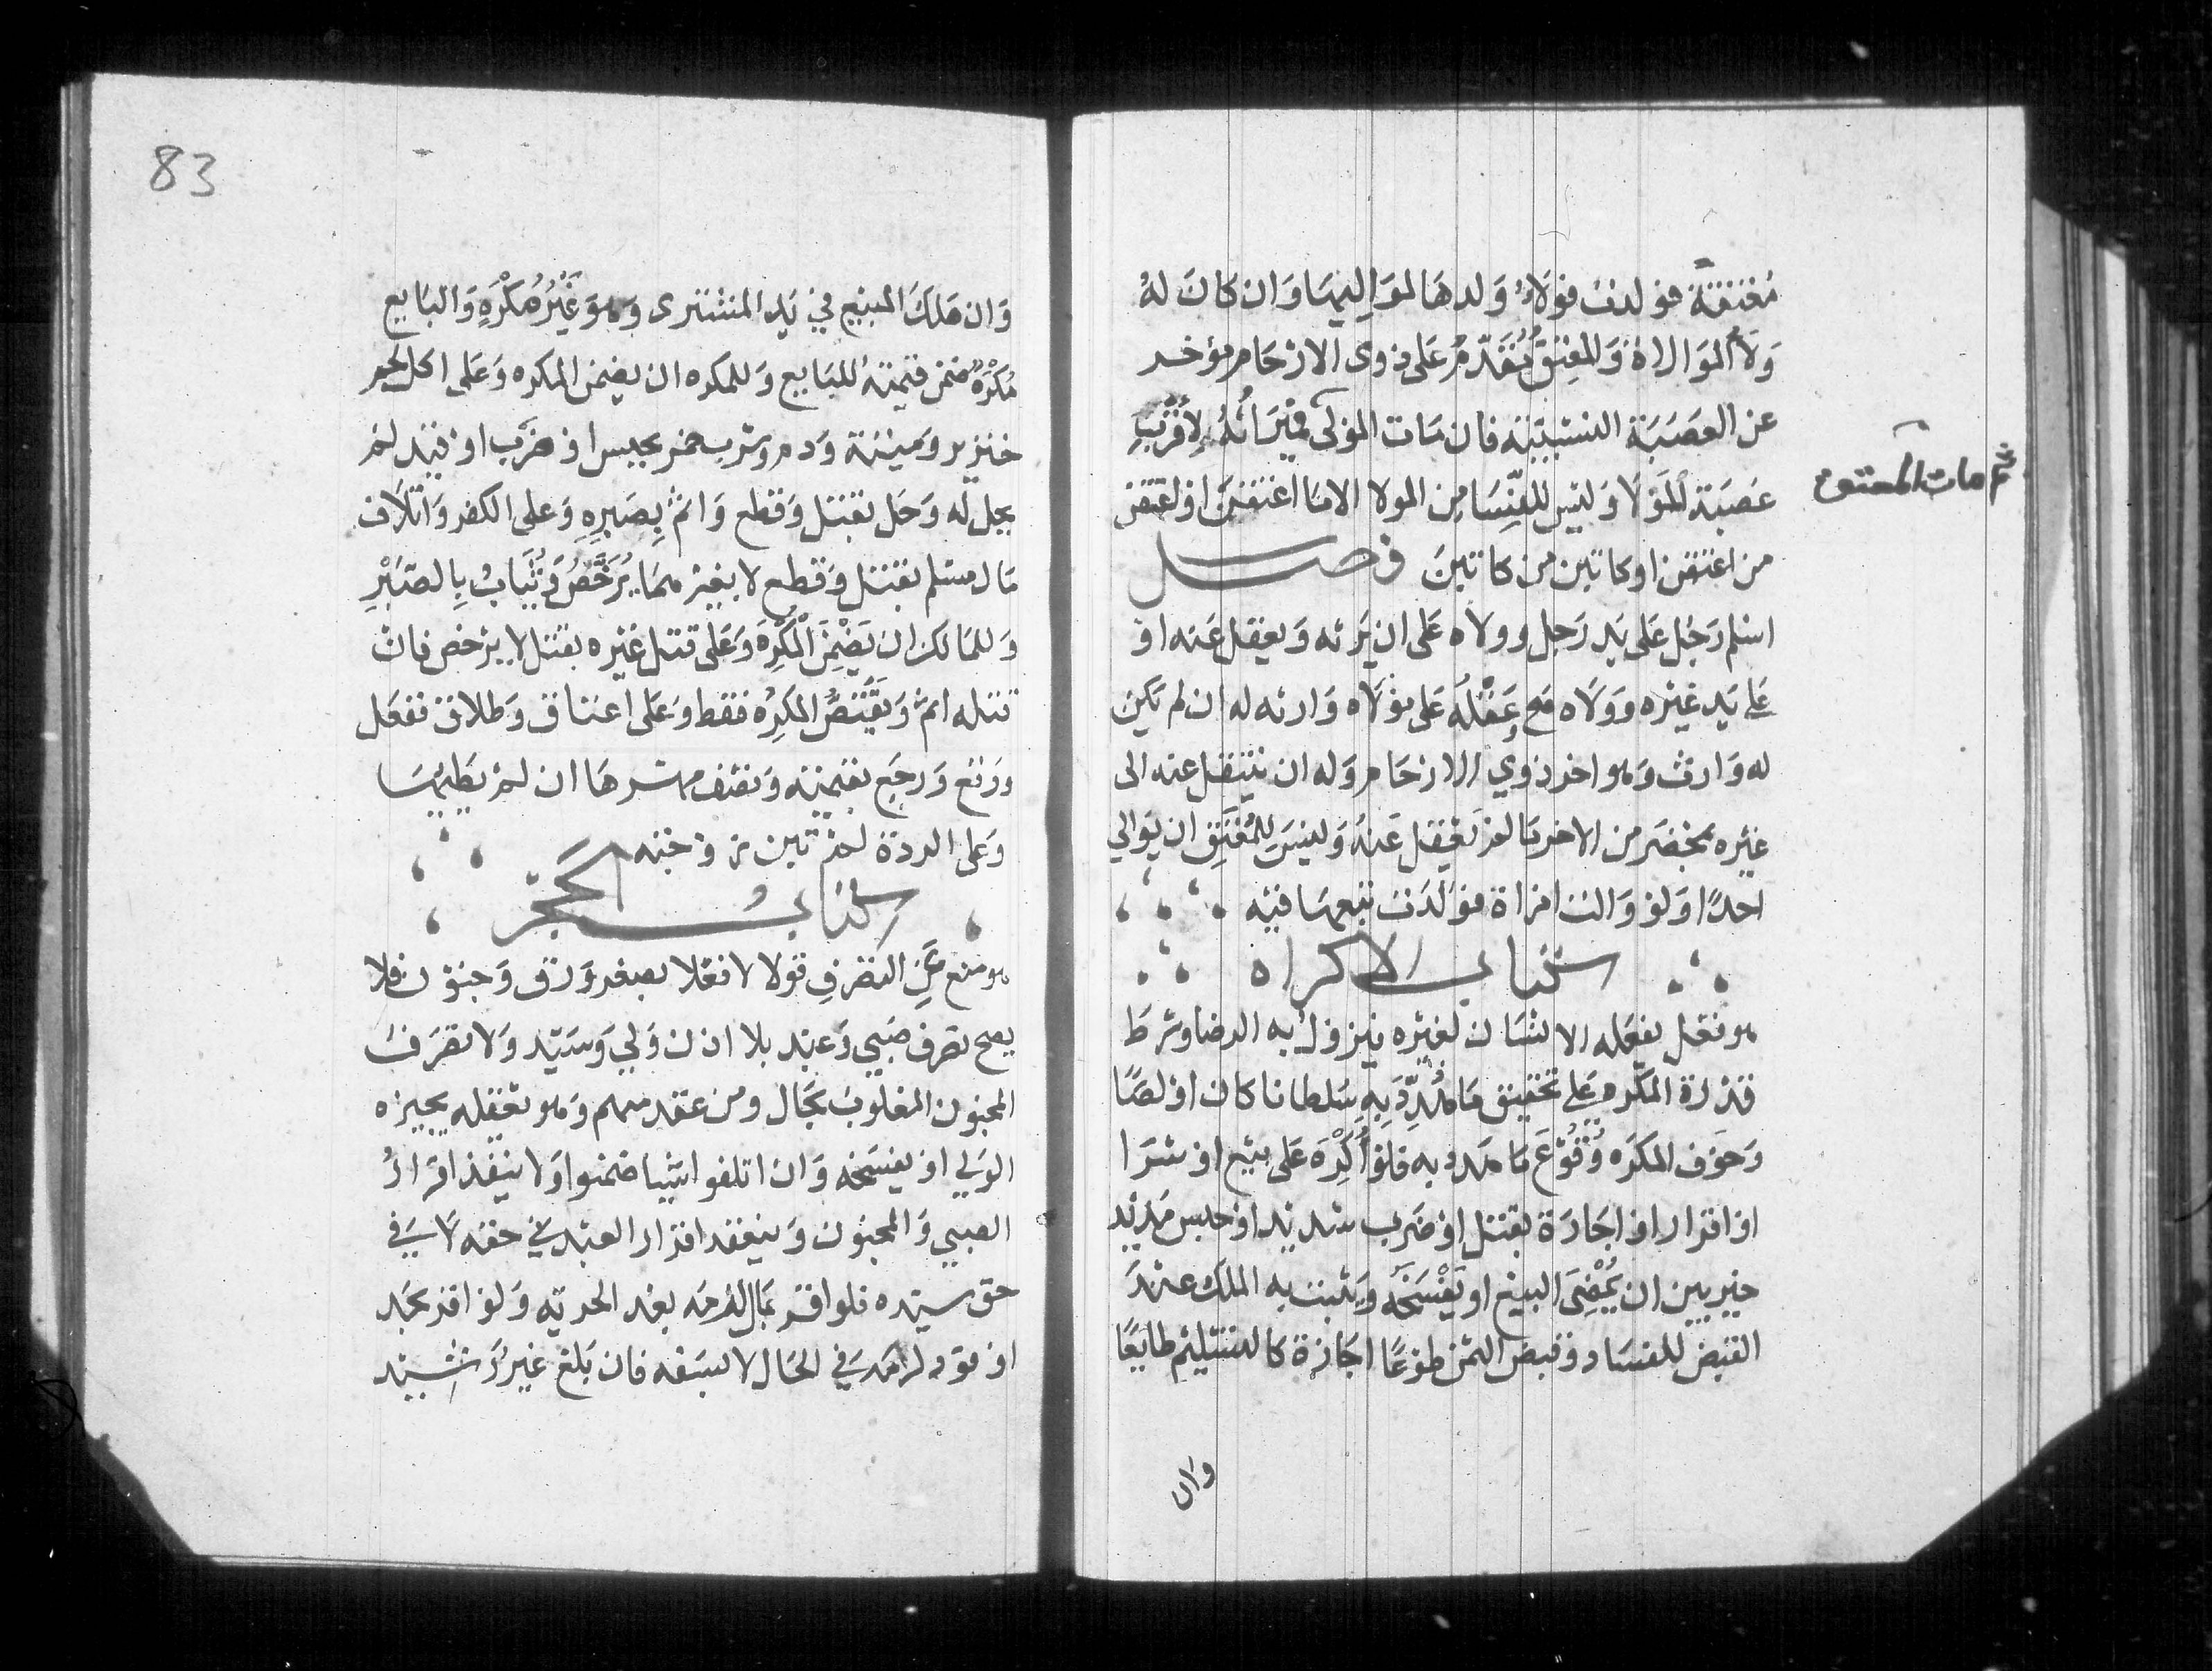 معتقة فولدت فولاء ولدها لمواليها وان كان له
ولاء الموالاة والمعتق يقدم على ذوى الارحام مؤخر
عن العصبة النسبية فان مات المولى فميراثه لاقرب
ثم مات المعتق
عصبة المولا وليس للنسا من الولا الا ما اعتقن او اعتق
من اعتقن او كاتبن من كاتبن فصل
اسلم رجل على يد رجل ووالاه على ان يرثه ويعقل عنه او
على يد غيره ووالاه صح وعقله على مولاه وارثه له ان لم يكن
له وارث وهو اخر ذوي الارحام وله ان ينتقل عنه الى
غيره بمحضر من الاخر ما لم يعقل عنه وليس للمعتق ان يوالي
احدا ولو والت امراة فولدت تبعها فيه
كتاب الاكراه
هو فعل يفعله الانسان لغيره فيزول به الرضا وشرط
قدرة المكره على تحقيق ما هدد به سلطانا كان او لصا
وخوف المكره وقوع ما هدد به فلو اكره على بيع او شرا
او اقرار او اجارة بقتل او ضرب شديد او حبس مديد
خير بين ان يمضى البيع او يفسخه ويثبت به الملك عند
القبض للفساد وقبض الثمن طوعا اجازة كالتسليم طايعا
وان
83
وان هلك المبيع في يد المشترى وهو غير مكره والبايع
مكره ضمن قيمته للبايع وللمكره ان يضمن المكره وعلى اكل لحم
خنزير وميتة ودم وشرب خمر بحبس او ضرب او قيد لم
يحل له وحل بقتل وقطع واثم بصبره وعلى الكفر واتلاف
مال مسلم بقتل وقطع لا بغيرهما يرخص ويثاب بالصبر
وللمالك ان يضمن المكره وعلى قتل غيره بقتل لا يرخص فان
قتله اثم ويقتص المكره فقط وعلى اعتاق وطلاق ففعل
ووقع ورجع بقيمته ونصف مهرها ان لم يطيها
وعلى الردة لم تبن زوجته
كتاب الحجر
هو منع عن التصرف قولا لا فعلا بصغر ورق وجنون فلا
يصح تصرف صبي وعبد بلا اذن ولي وسيد ولا تصرف
المجنون المغلوب بحال ومن عقد منهم وهو يعقله يجيزه
الولي او يفسخه وان اتلفوا شيا ضمنوا ولا ينفذ اقرار
الصبي والمجنون وينفذ اقرار العبد في حقه لا في
حق سيده فلو اقر بمال لزمه بعد الحرية ولو اقر بحد
او قود لزمه في الحال لا بسفه فان بلغ غير رشيد